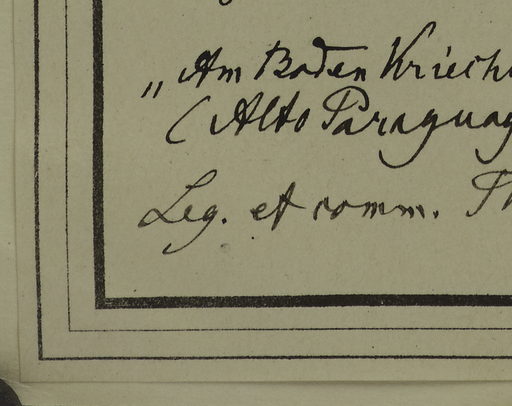 „Am Boden Kriech
(Alto Paraguay
Leg. et comm.